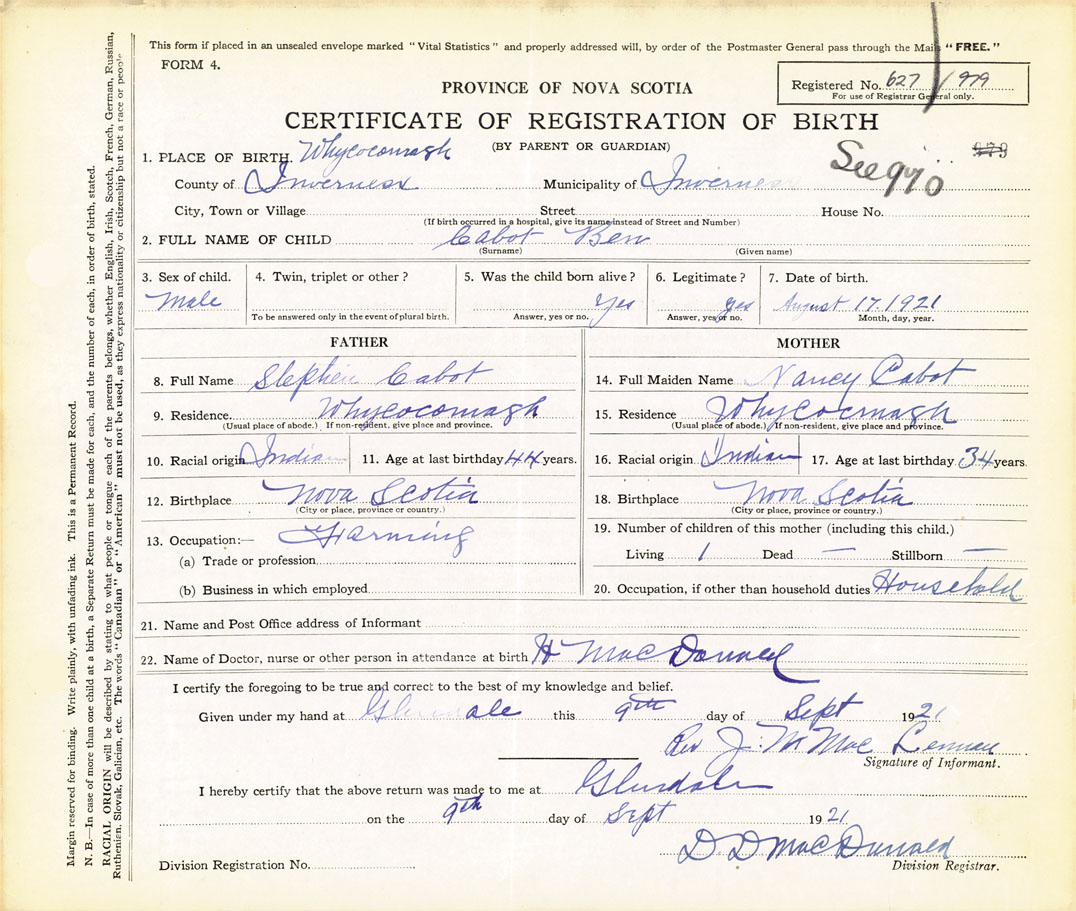 This form if placed in an unsealed envelope marked "Vital Statistics" and properly addressed will, by order of the Postmaster General pass through the Mails "FREE."
FORM 4.
Registered No. 627 / 979
For use of Registrar General only.
PROVINCE OF NOVA SCOTIA
CERTIFICATE OF REGISTRATION OF BIRTH
(BY PARENT OR GUARDIAN)
See 970
979
1. PLACE OF BIRTH. Whycocomagh
County of Inverness Municipality of Inverness
City, Town or Village Street House No.
(If birth occurred in a hospital, give its name instead of Street and Number)
2. FULL NAME OF CHILD Cabot Ben
(Surname) (Given name)
3. Sex of child. 4. Twin, triplet or other? 5. Was the child born alive? 6. Legitimate? 7. Date of birth.
Male Yes Yes August 17. 1921
To be answered only in the event of plural birth. Answer, yes or no. Answer, yes or no. Month, day, year.
FATHER
8. Full Name Stephen Cabot
9. Residence. Whycocomagh
(Usual place of abode.) If non-resident, give place and province.
10. Racial origin Indian 11. Age at last birthday 44 years.
12. Birthplace Nova Scotia
(City or place, province or country.)
13. Occupation:— Farming
(a) Trade or profession
(b) Business in which employed
MOTHER
14. Full Maiden Name Nancy Cabot
15. Residence Whycocmagh
(Usual place of abode.) If non-resident, give place and province.
16. Racial origin Indian 17. Age at last birthday 34 years.
18. Birthplace Nova Scotia
(City or place, province or country.)
19. Number of children of this mother (including this child.)
Living 1 Dead — Stillborn —
20. Occupation, if other than household duties Household
21. Name and Post Office address of Informant
22. Name of Doctor, nurse or other person in attendance at birth H MacDonald
I certify the foregoing to be true and correct to the best of my knowledge and belief.
Given under my hand at Glendale this 9th day of Sept 1921
Rev J. M Mac Lennan
Signature of Informant.
I hereby certify that the above return was made to me at Glendale
on the 9th day of Sept 1921
D. D MacDonald
Division Registration No. Division Registrar.
Margin reserved for binding. Write plainly, with unfading ink. This is a Permanent Record.
N. B.—In case of more than one child at a birth, a Separate Return must be made for each, and the number of each, in order of birth, stated.
RACIAL ORIGIN will be described by stating to what people or tongue each of the parents belongs, whether English, Irish, Scotch, French, German, Russian,
Ruthenian, Slovak, Galician, etc. The words "Canadian" or "American" must not be used, as they express nationality or citizenship but not a race or people